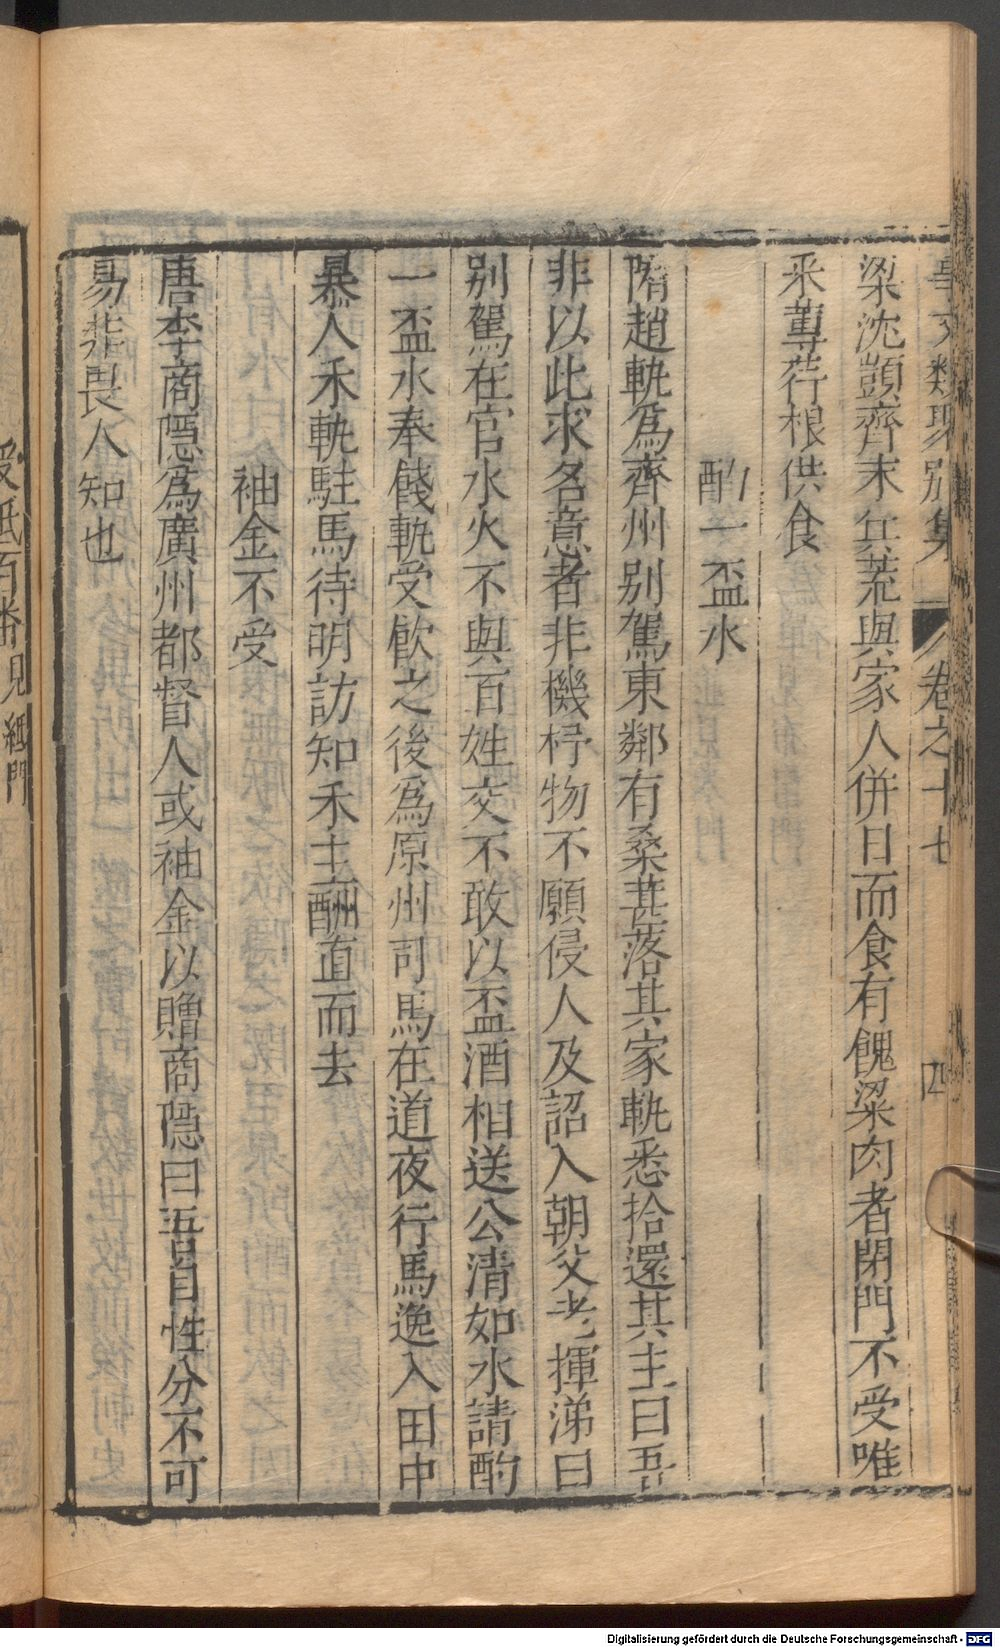 事文類聚別集 卷之十七 四
梁沈顗齊末兵荒與家人併日而食有餽粱肉者閉門不受唯
采蓴荇根供食
酌一盃水
隋趙軌爲齊州別駕東鄰有桑葚落其家軌悉拾還其主曰吾
非以此求名意者非機杼物不願侵人及詔入朝父老揮涕曰
別駕在官水火不與百姓交不敢以盃酒相送公清如水請酌
一盃水奉餞軌受飲之後爲原州司馬在道夜行馬逸入田中
暴人禾軌駐馬待明訪知禾主酬直而去
袖金不受
唐李商隱爲廣州都督人或袖金以贈商隱曰吾自性分不可
易非畏人知也
受紙百番見紙門
Digitalisierung gefördert durch die Deutsche Forschungsgemeinschaft - DFG